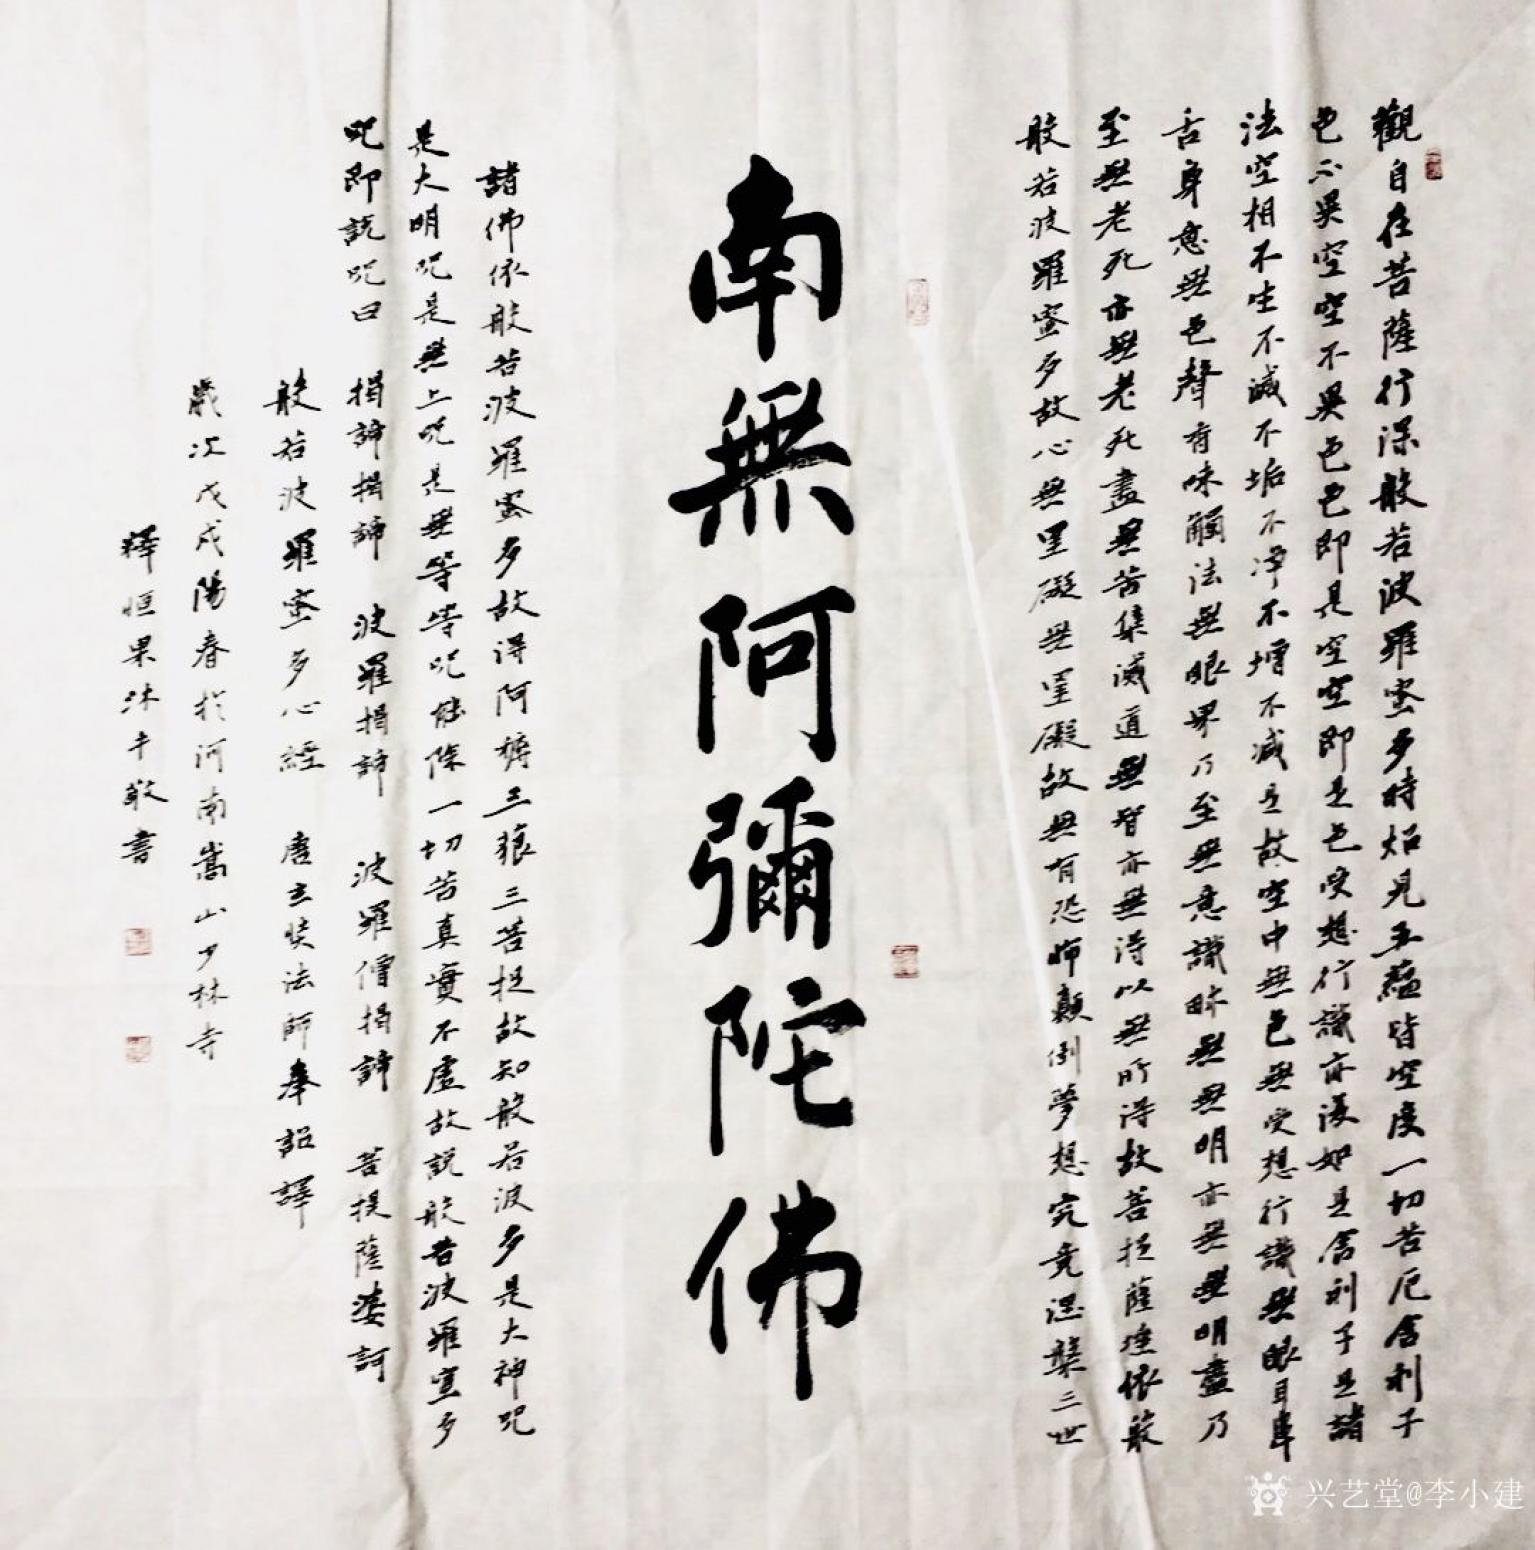 觀自在菩薩行深般若波羅蜜多時炤見五蘊皆空度一切苦厄舍利子
色不異空空不異色色即是空空即是色受想行識亦復如是舍利子是諸
法空相不生不滅不垢不淨不增不減是故空中無色無受想行識無眼耳鼻
舌身意無色聲香味觸法無眼界乃至無意識界無無明亦無無明盡乃
至無老死亦無老死盡無苦集滅道無智亦無得以無所得故菩提薩埵依般
般若波羅蜜多故心無罣礙無罣礙故無有恐怖顛倒夢想究竟涅槃三世
南無阿彌陀佛
諸佛依般若波羅蜜多故得阿耨三藐三菩提故知般若波多是大神咒
是大明咒是無上咒是無等等咒能除一切苦真實不虛故說般若波羅蜜多
咒即說咒曰 揭諦揭諦 波羅揭諦 波羅僧揭諦 菩提薩婆訶
般若波羅蜜多心經 唐玄奘法師奉詔譯
歲次戊戌陽春於河南嵩山少林寺
釋恒果沐手敬書
兴艺堂@李小建